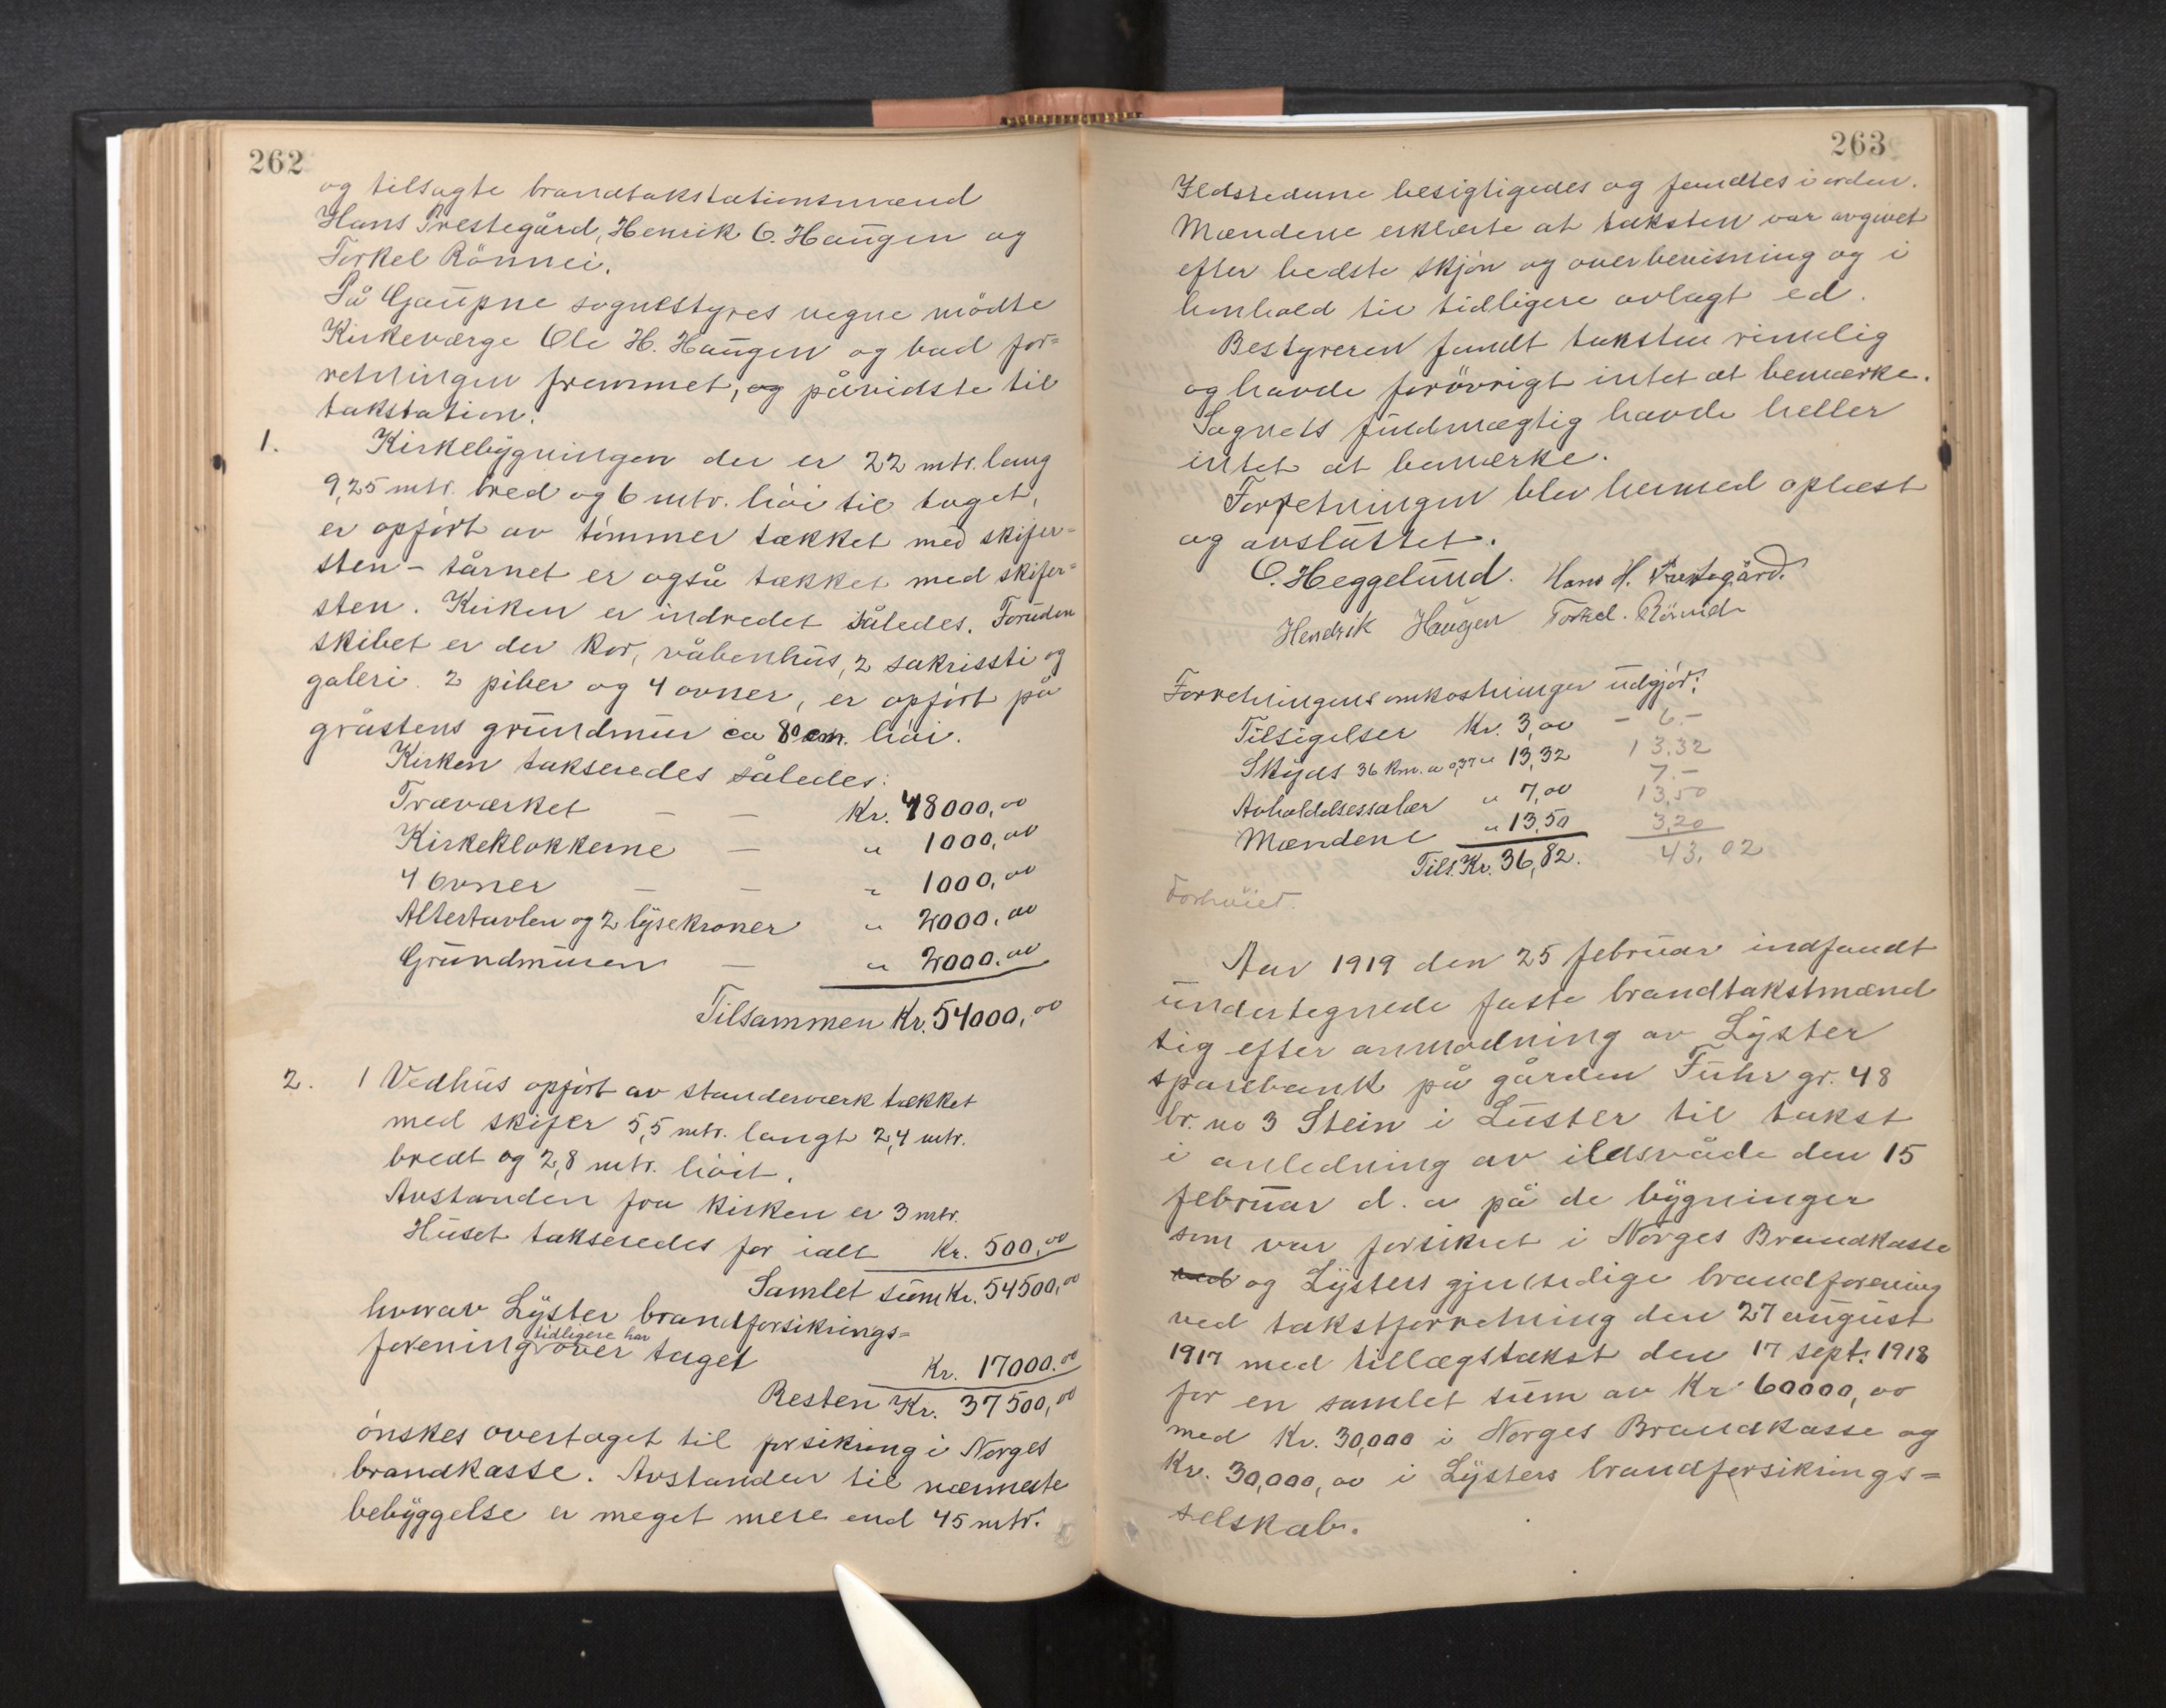 262
og tilsagte brandtakstationsmænd
Hans Prestegård, Henrik O. Haugen og
Torkel Rönnei.
På Gaupne sognestyres vegne mödte
Kirkeværge Ole H. Haugen og bad for=
retningen fremmet, og påvidste til
takstation:
1. Kirkebygningen der er 22 mtr. lang
9,25 mtr. bred og 6 mtr. höi til taget,
er opfört av tömmer tækket med skifer=
sten - tårnet er også tækket med skifer=
sten. Kirken er indredet således. Foruden
skibet er der kor, våbenhus, 2 sakristi og
galeri. 2 piber og 4 ovner, er opfört på
gråstens grundmur ca 80 cm. höi.
Kirken takseredes således:
Træværket — — Kr. 48000,00
Kirkeklokkerne — " 1000,00
4 Ovner — — " 1000,00
Altertavlen og 2 lysekroner " 2000,00
Grundmuren — " 2000,00
Tilsammen Kr. 54000,00
2. 1 Vedhus opfört av standerværk tækket
med skifer 5,5 mtr. langt 2,4 mtr.
bredt og 2,8 mtr. höit.
Avstanden fra kirken er 3 mtr.
Huset takseredes for ialt Kr. 500,00
Samlet sum Kr. 54500,00
hvorav Lyster brandforsikrings=
forening tidligere har over taget Kr. 17000,00
Resten Kr. 37500,00
önskes overtaget til forsikring i Norges
brandkasse. Avstanden til nærmeste
bebyggelse er meget mere end 45 mtr.
263
Ildstedene besigtigedes og fandtes i orden.
Mændene erklærte at taksten var avgivet
efter bedste skjön og overbevisning og i
henhold til tidligere avlagt ed.
Bestyreren fandt taksten rimelig
og havde forövrigt intet at bemærke.
Sognets fuldmægtig havde heller
intet at bemærke.
Forretningen blev hermed oplæst
og avsluttet.
O. Heggelund. Hans H. Prestegård.
Hendrik Haugen Torkel. Rönnei
Forretningens omkostninger udgjör:
Tilsigelser Kr. 3,00 - 6.-
Skyds 36 km. a 0,37 " 13,32 13.32
Avholdelsessalær " 7,00 7.-
Mændene " 13,50 13,50
3,20
Tils. Kr. 36,82. 43,02
Forhöiet.
Aar 1919 den 25 februar indfandt
undertegnede faste brandtakstmænd
sig efter anmodning av Lyster
sparebank på gården Fuhr gr. 48
br. no 3 Stein i Luster til takst
i anledning av ildsvåde den 15
februar d. a på de bygninger
som var forsikret i Norges Brandkasse
og Lysters gjensidige brandforening
ved takstforretning den 27 august
1917 med tillægstakst den 17 sept. 1918
for en samlet sum av Kr 60000,00
med Kr. 30,000 i Norges Brandkasse og
Kr. 30,000,00 i Lysters brandforsikrings=
selskab.